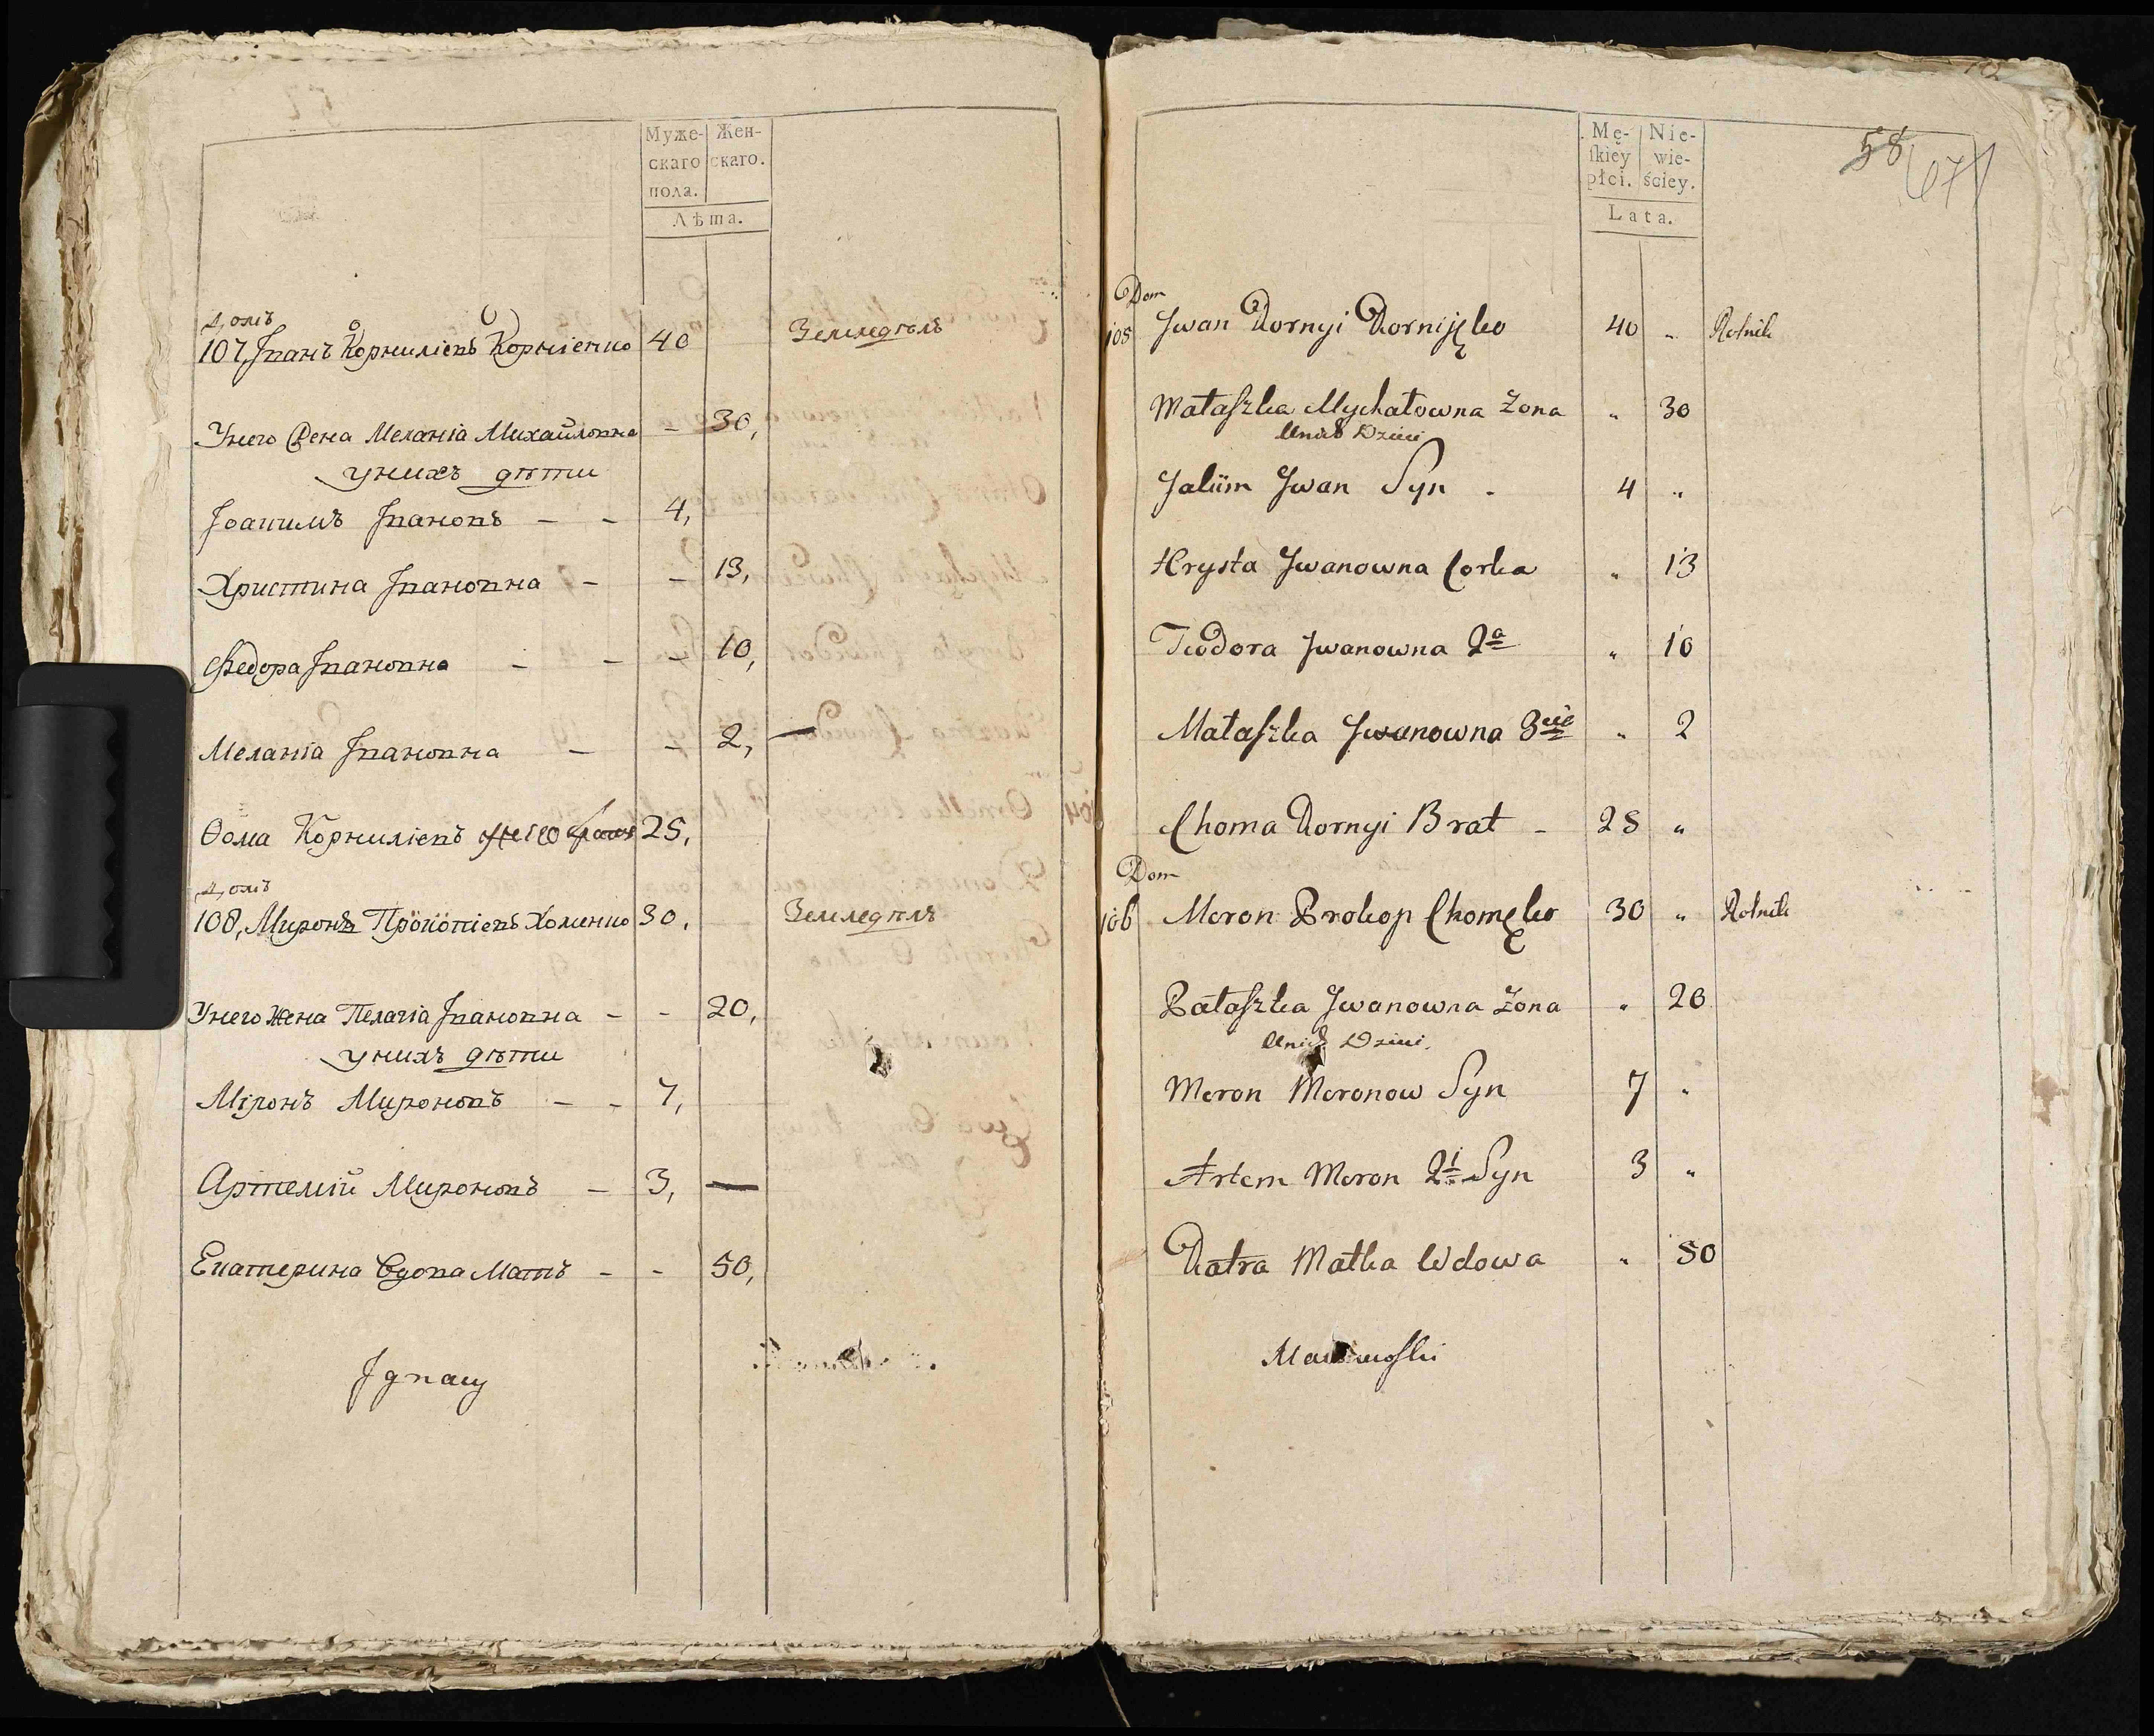 Муже- Жен-
скаго скаго.
пола.
Лѣта.
Домъ
107, Іванъ Корниліевъ Корніенко 40 Земледѣлъ
Унего Жена Меланіа Михайловна - 30,
унихъ дѣти
Іоакимъ Івановъ - - 4,
Христина Івановна - - 13,
Федора Івановна - - - 10,
Меланіа Івановна - - 2, —
Ѳома Корниліевъ унего братъ 25,
Домъ
108, Миронъ Прокопіевъ Хоменко 30, Земледѣлъ
Унего жена Пелагіа Івановна - - 20,
унихъ дѣти
Міронъ Мироновъ - - 7,
Артемій Мироновъ - 3, —
Екатерина Вдова Мать - - 50,
Jgnacy
58
67
Mę- Nie-
ſkiey wie-
płci. ściey.
Lata.
Dom
105 Jwan Kornyi Kornijęko 40 „ Rolnik
Małaszka Mychałowna Żona „ 30
Unich Dzieci
Jakim Jwan Syn - 4 „
Hrysta Jwanowna Corka „ 13
Teodora Jwanowna 2a „ 10
Małaszka Jwanowna 3cie „ 2
Choma Kornyi Brat - 25 „
Dom
106 Meron Prokop Chomęko 30 „ Rolnik
Pałaszka Jwanowna Żona „ 20
Unich Dzieci.
Meron Meronow Syn 7 „
Artem Meron 2i Syn 3 „
Katra Matka Wdowa „ 50